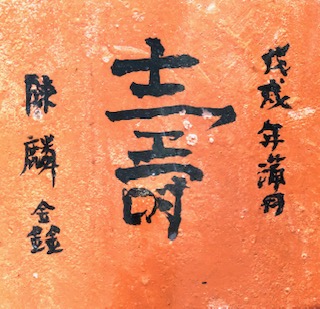 戊戌年蒲月
壽
陳麟金